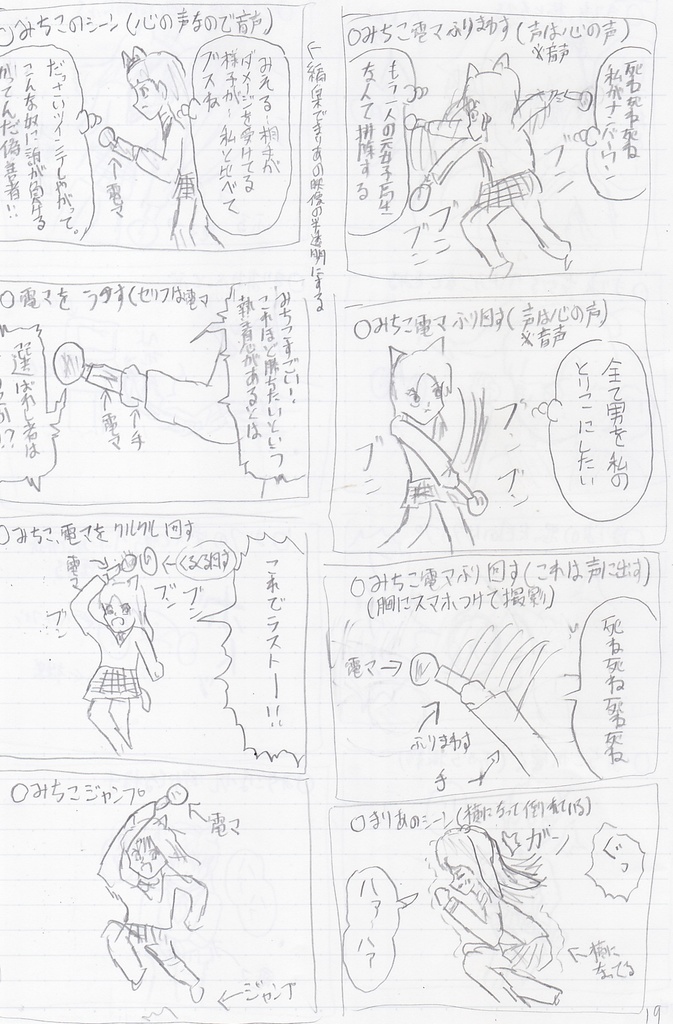 ○みちこ電マふりまわす(声は心の声)
※音声
死ね死ね死ね
私がナンバーワン
もう一人の元女子高生
なんて排除する
ブン
ブン
ブン
○みちこ電マふり回す(声は心の声)
※音声
全て男を私の
とりこにしたい
ブン
ブン
ブン
○みちこ電マふり回す(これは声に出す)
(胸にスマホつけて撮影)
死ね死ね死ね死ね
電マ→
ふりまわす
手
○まりあのシーン(横になって倒れている)
ぐっ
ガーン
ハァーハァ
←横に
なってる
○みちこのシーン(心の声なので音声)
←編集でまりあの映像の半透明にする
みえる…相手が
ダメージを受けてる
様子が…私と比べて
ブスね
だっさいツインテしやがって。
こんな奴に誰が負ける
かってんだ偽善者!!
←電マ
○電マをうつす(セリフは電マ
みちこすごい…
これほど勝ちたいという
執着心があるとは
選ばれし者は
←手
←電マ
○みちこ、電マをクルクル回す
電マ
←くるくる回す
ブン
ブン
ブン
これでラストー!!
○みちこジャンプ
電マ
←ジャンプ
19